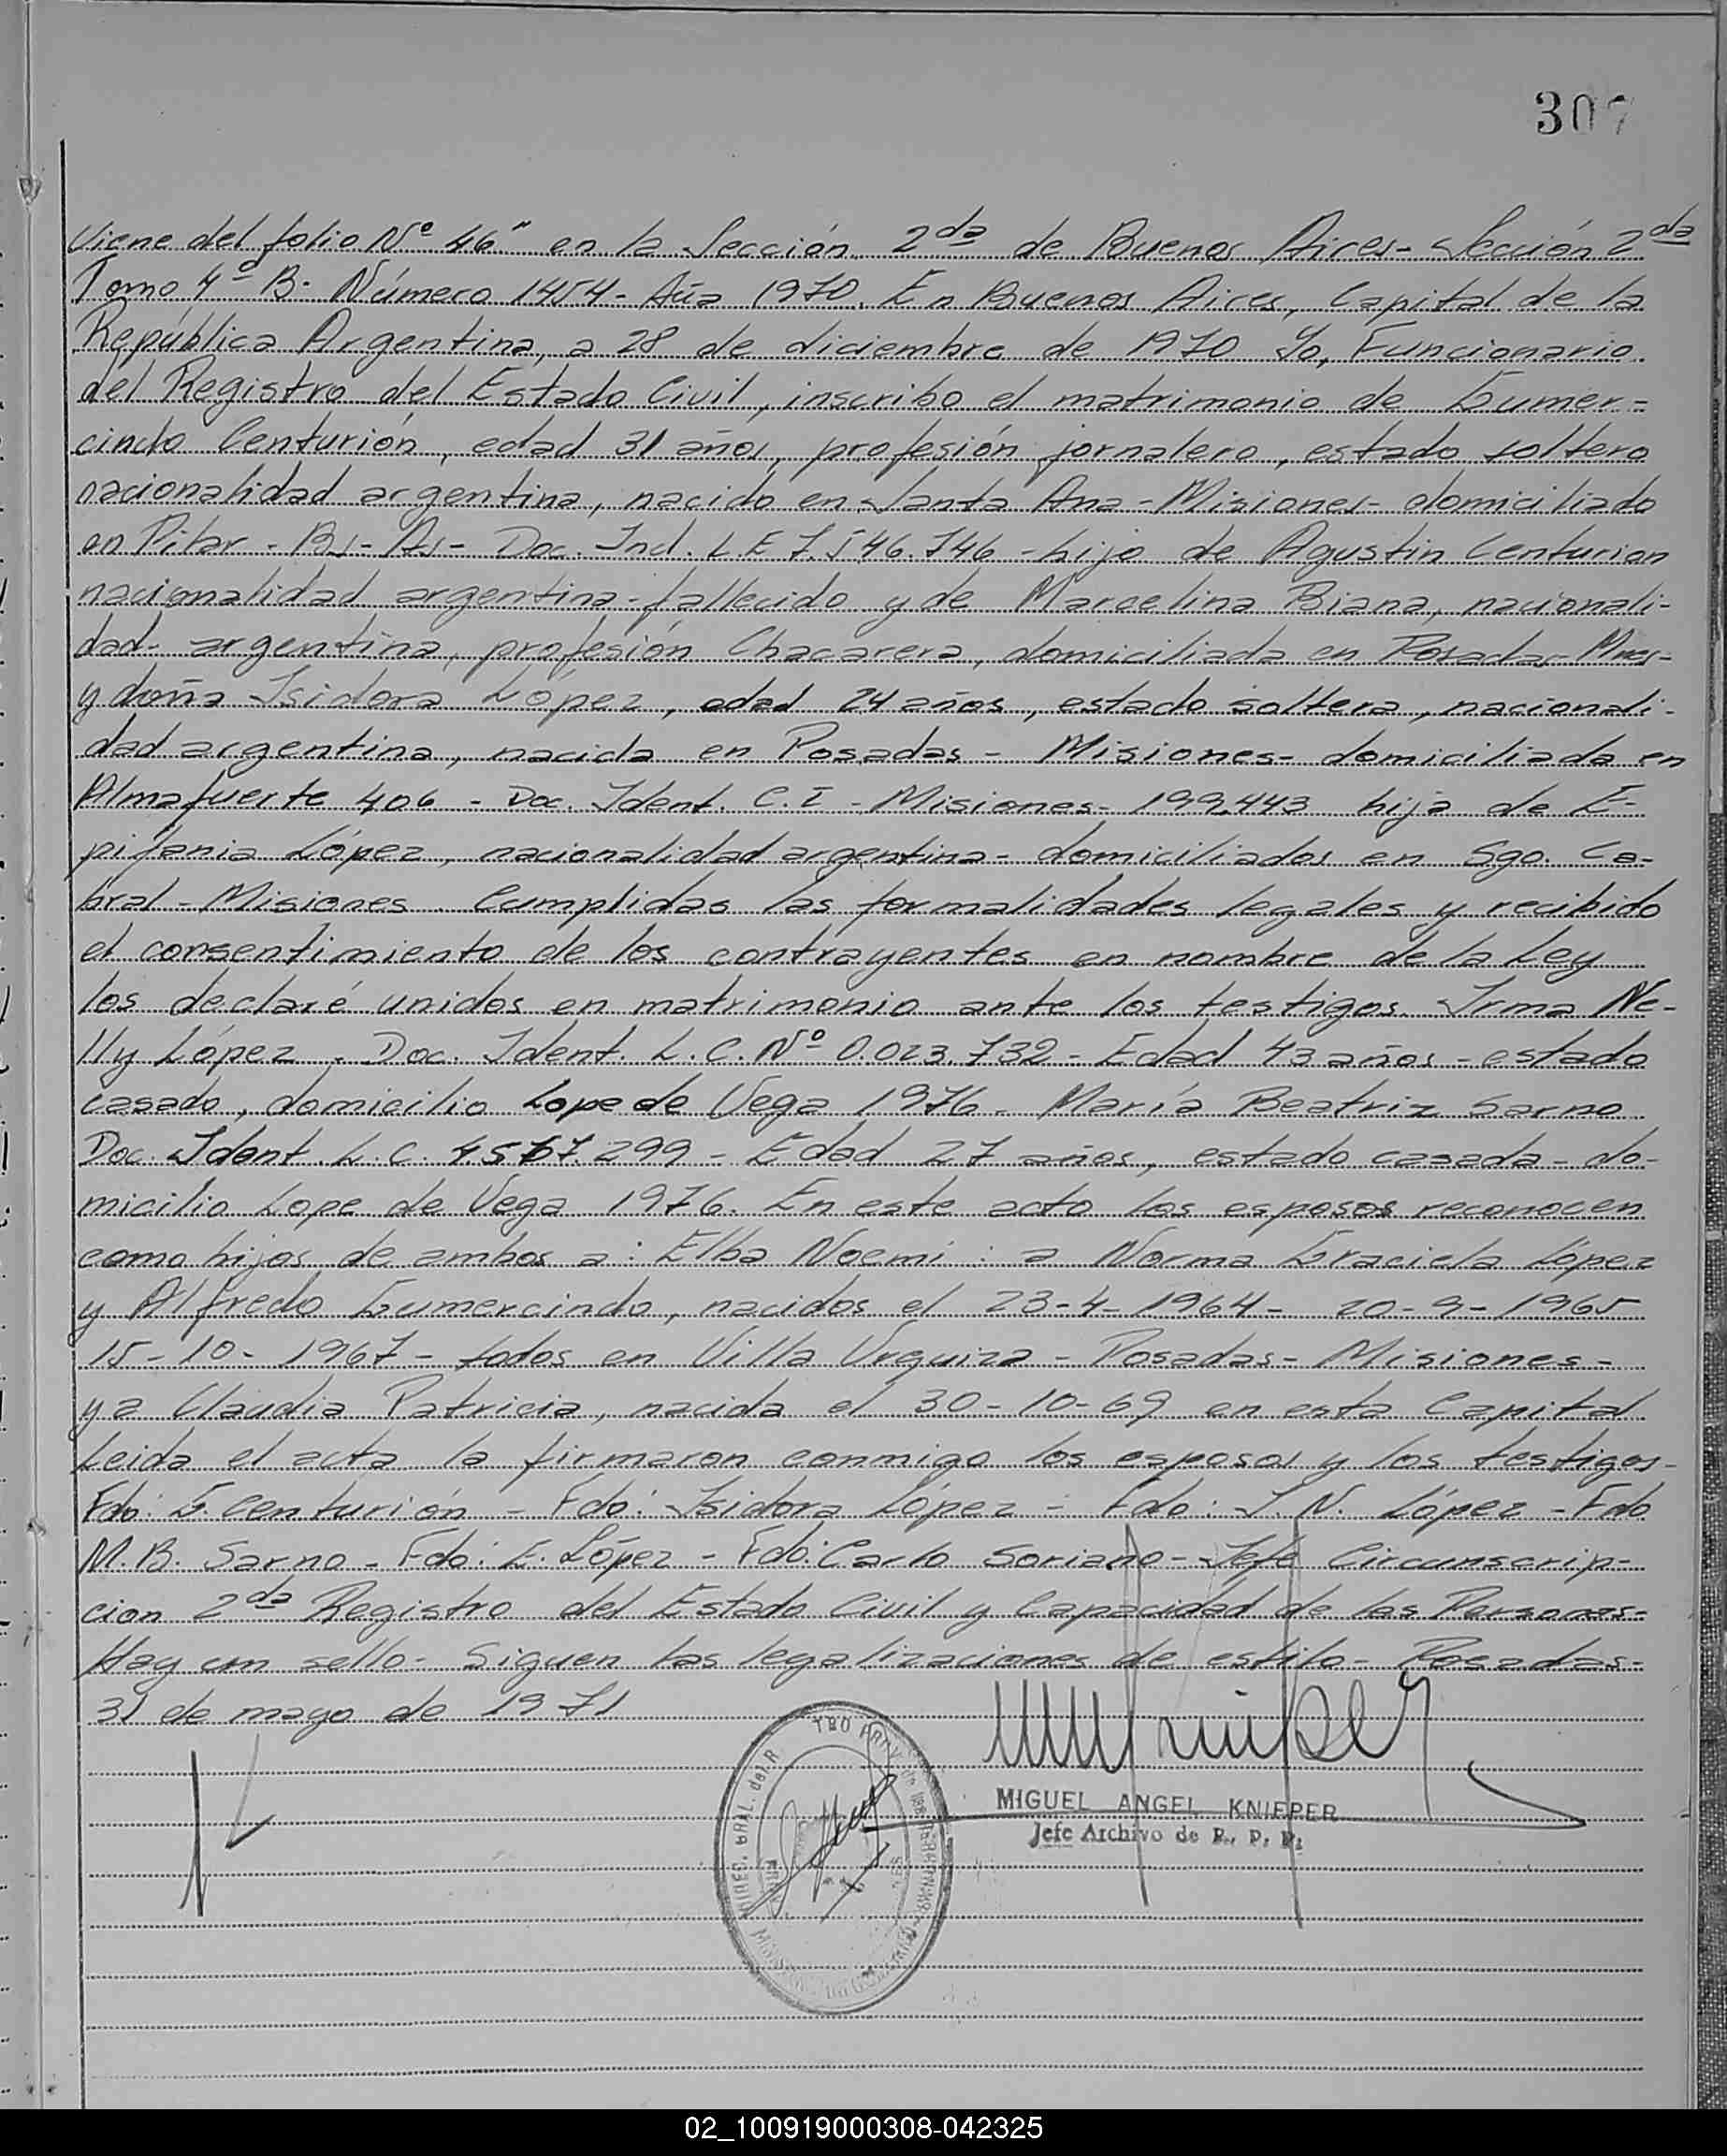 307
Viene del folio Nº 46" en la Sección 2da de Buenos Aires- Sección 2da
Tomo 4º B. Número 1454- Año 1970. En Buenos Aires, Capital de la
República Argentina, a 28 de diciembre de 1970 Yo, Funcionario
del Registro del Estado Civil, inscribo el matrimonio de Gumer=
cindo Centurión, edad 31 años, profesión jornalero, estado soltero
nacionalidad argentina, nacido en Santa Ana - Misiones- domiciliado
en Pilar - Bs- As- Doc. Ind. L.E 7.546.746 - hijo de Agustin Centurion
nacionalidad argentina- fallecido y de Marcelina Biana, nacionali-
dad- argentina, profesión Chacarera, domiciliada en Posadas- Mnes-
y doña Isidora López, edad 24 años, estado soltera, nacionali-
dad argentina, nacida en Posadas - Misiones- domiciliada en
Almafuerte 406 - Doc. Ident. C.I - Misiones- 199.443 hija de E-
pifania López, nacionalidad argentina- domiciliados en Sgo. Ca-
bral - Misiones. Cumplidas las formalidades legales y recibido
el consentimiento de los contrayentes en nombre de la Ley
los declaré unidos en matrimonio ante los testigos. Irma Ne-
lly López. Doc. Ident. L.C. Nº 0.023.732 - Edad 43 años - estado
casado, domicilio Lope de Vega 1976. María Beatriz Sarno
Doc. Ident. L.C. 299 - Edad 27 años, estado casada - do-
micilio Lope de Vega 1976. En este acto los esposos reconocen
como hijos de ambos a: Elba Noemi: a Norma Graciela López
y Alfredo Gumercindo, nacidos el 23-4-1964- 20-9-1965
15-10-1967- todos en Villa Urquiza - Posadas- Misiones-
y a Claudia Patricia, nacida el 30-10-69 en esta Capital
Leida el acta la firmaron conmigo los esposos y los testigos-
Fdo: G. Centurión - Fdo: Isidora López - Fdo: I. N. López - Fdo
M.B. Sarno - Fdo: E. López - Fdo: Carlo Soriano- Jefe Circunscrip-
cion 2da Registro del Estado Civil y Capacidad de las Personas-
Hay un sello- Siguen las legalizaciones de estilo- Posadas-
31 de mayo de 1971
MIGUEL ANGEL KNIEPER
Jefe Archivo de R. P. P.
02_100919000308-042325